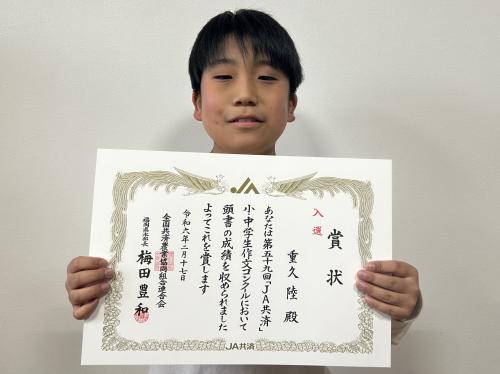 JA
賞状
入選
重久 陸 殿
あなたは第五十九回「JA共済」
小・中学生作文コンクールにおいて
頭書の成績を収められました
よってこれを賞します
令和六年二月十七日
全国共済農業協同組合連合会
福岡県本部長 梅田豊和
JA共済